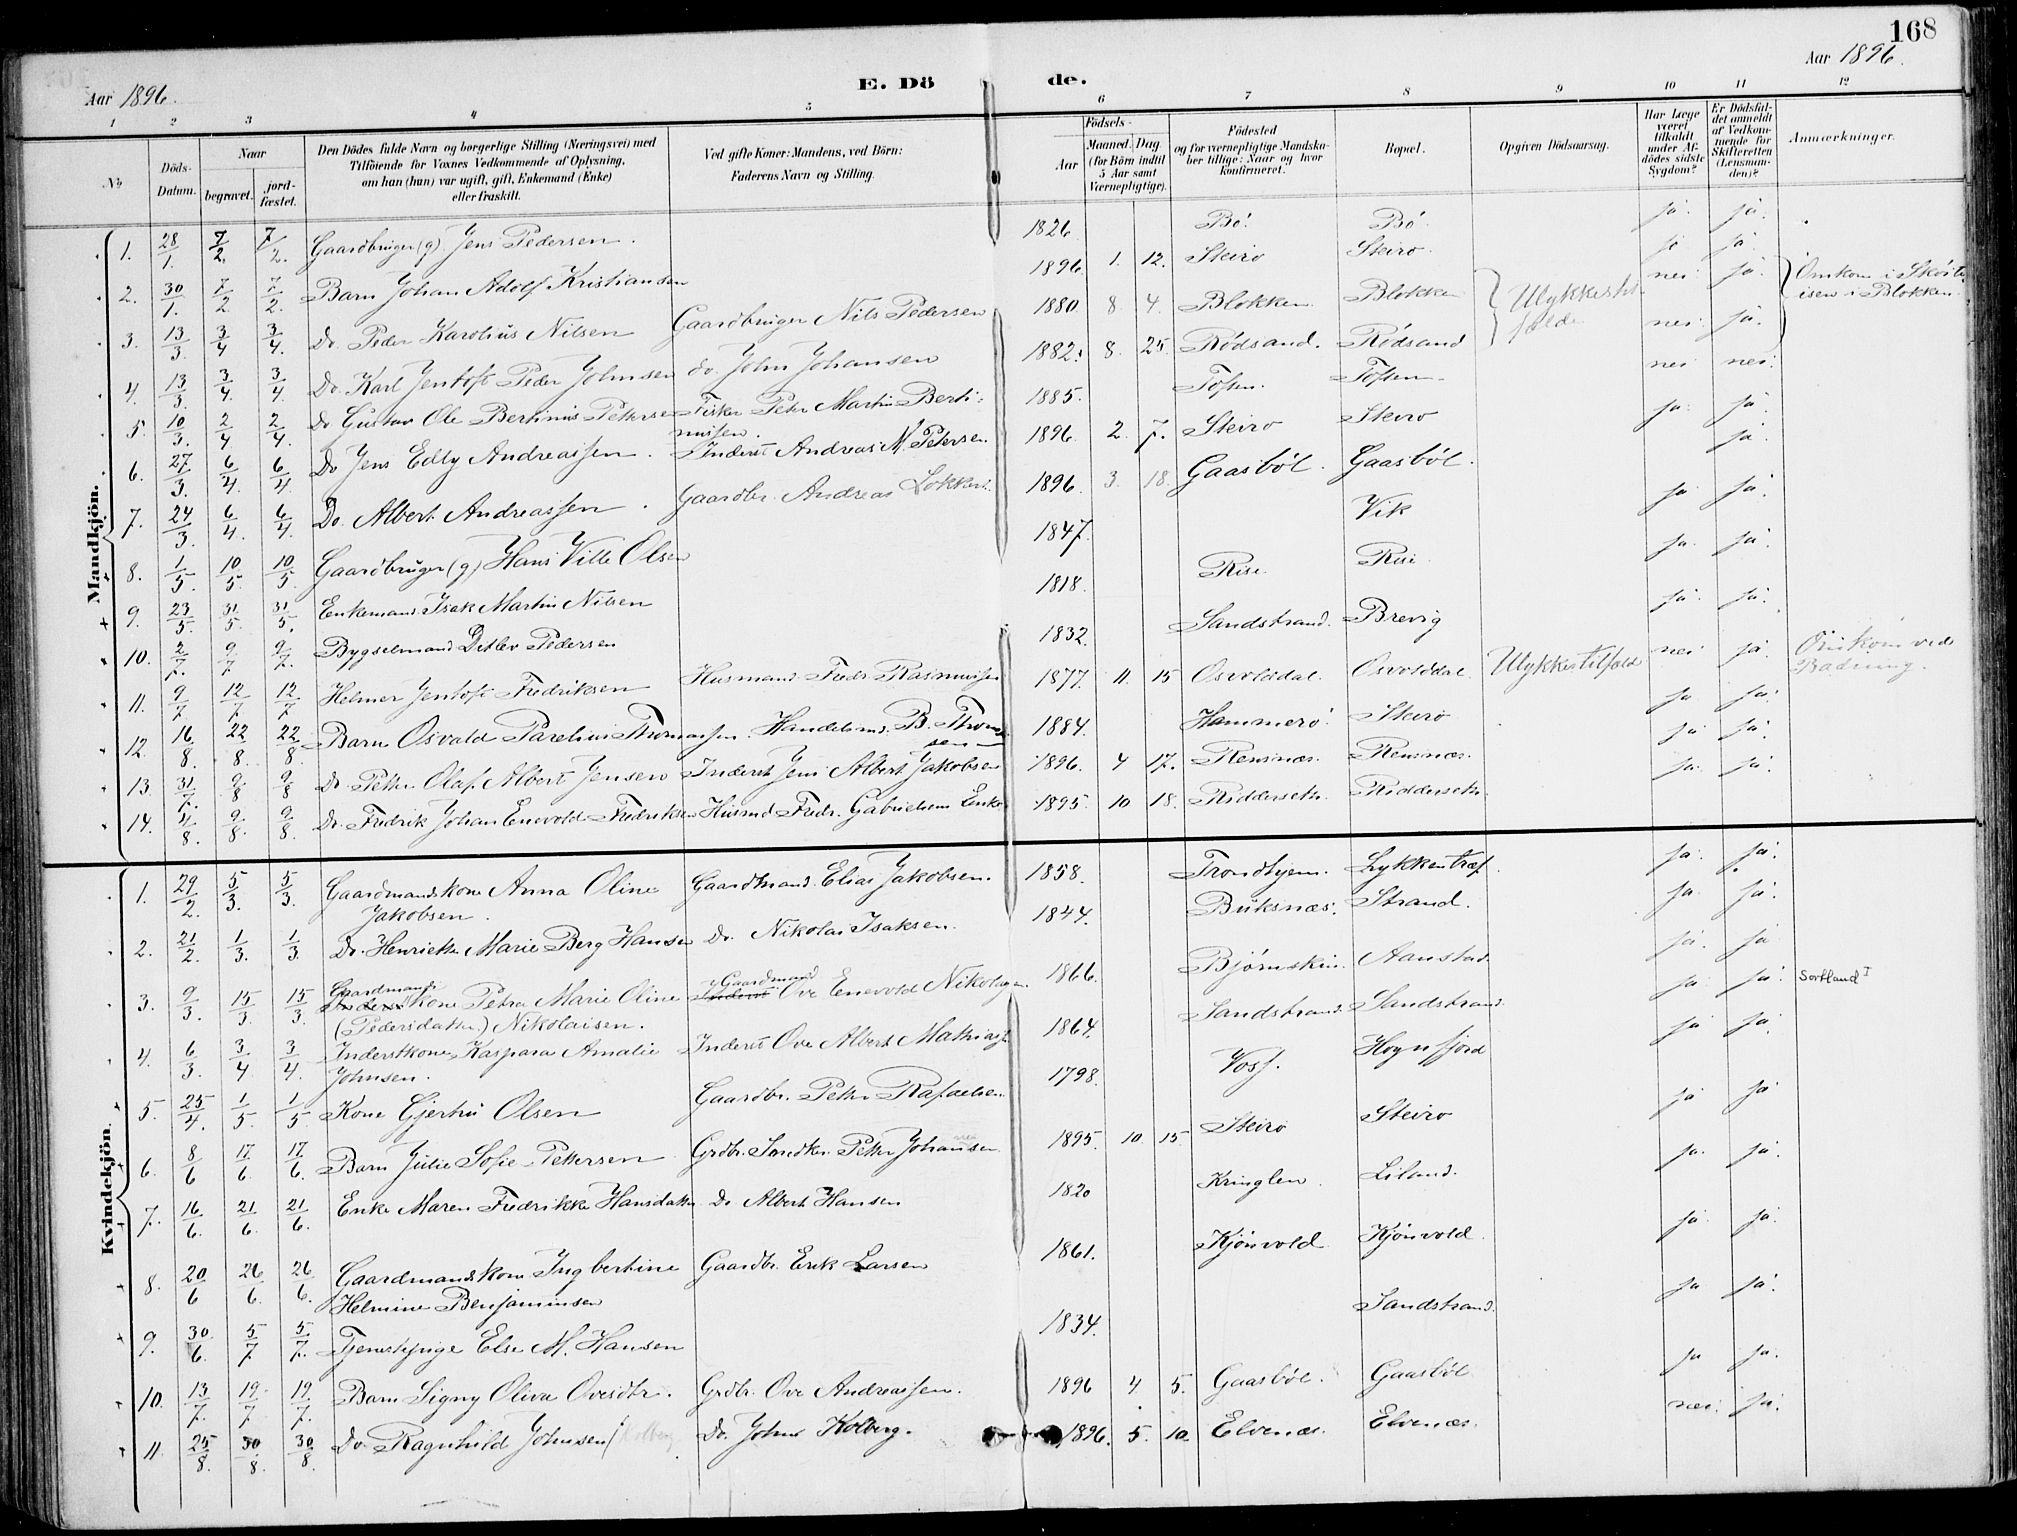 168
Aar 1896.
E. Dö de.
Aar 1896.
1 2 3 4 5 6 7 8 9 10 11 12
No
Döds-Datum.
Naar
begravet. jord-fæstet.
Den Dödes fulde Navn og borgerlige Stilling (Næringsvei) med
Tilföiende for Voxnes Vedkommende af Oplysning,
om han (hun) var ugift, gift, Enkemand (Enke)
eller fraskilt.
Ved gifte Koner: Mandens, ved Börn:
Faderens Navn og Stilling.
Födsels-
Aar Maaned. Dag
(for Börn indtil 5 Aar samt Værnepligtige).
Födested
og for værnepligtige Mandska-
ber tillige: Naar og hvor
konfirmeret.
Bopæl.
Opgiven Dödsaarsag.
Har Læge været tilkaldt under Af-dödes sidste Sygdom?
Er Dödsfal-det anmeldt af Vedkom-mende for Skifteretten (Lensman-den)?
Anmærkninger.
Mandkjön.
1. 28/1. 7/2. 7/2. Gaardbruger (g). Jens Pedersen. 1826 Bö. Bö. ja. ja.
2. 30/1. 7/2. 7/2. Barn Johan Adolf Kristiansen 1896. 1. 12. Steiro Steiro. ja ja.
3. 13/3. 3/4 3/4. Do. Peder Karolius Nilsen Gaardbruger Nils Pedersen 1880. 8. 4. Blokken Blokken Ulykkestil-fælde nei ja. Omkom i Sköite-isen i Blokken.
4. 13/3. 3/4. 3/4. Do. Karl Jentoft Peder Johnsen do. John Johansen 1882. 8. 25. Rödsand. Rödsand nei ja.
5. 10/3. 2/4 2/4. Do Gustav Ole Bertinius Petterse Fisker Peter Martin Berti-
nussen. 1885. Toften. Toften. nei nei.
6. 27/3. 6/4. 6/4 Do Jens Edly Andreassen. Inderst Andreas M. Petersen. 1896. 2. 7. Steiro Steiro ja. ja.
7. 24/3. 6/4. 6/4 Do. Albert Andreassen. Gaardbr. Andreas Lokkert. 1896. 3. 18. Gaasböl. Gaasböl. ja.
8. 1/5. 10/5. 10/5. Gaardbruger (g) Hans Ville Olsen 1847. Vik ja ja.
9. 23/5. 31/5. 31/5. Enkemand Isak Martin Nilsen 1818. Rise. Rise. ja. ja.
10. 2/7. 9/7 9/7. Bygselmand Ditlev Pedersen 1832. Sandstrand. Brevig ja. ja.
11. 9/7 12/7 12/7 Helmer Jentoft Fredriksen Husmand Fredr. Rasmussen 1877. 11 15 Osvolddal. Osvolddal Ulykkestilfæld nei ja. Omkom ved Badning.
12. 16/8. 22/8. 22/8. Barn Osvald Parelius Thomassen. Handelsmd. B. Thomas-
sen 1884. Hammerö. Steiro ja ja.
13. 31/7. 9/8 9/8 Do Petter Olaf Albert Jensen Inderst Jens Albert Jakobsen 1896. 4 17. Rensnæs. Rensnæs. ja ja.
14. 4/8. 9/8. 9/8. Do. Fredrik Johan Enevold Fredriksen Husmd Fredr. Gabrielsens Enke 1895. 10 18. Ridderseth. Ridderseth. ja. ja.
Kvindekjön.
1. 29/2. 5/3. 5/3. Gaardmandskone Anna Oline
Jakobsen. Gaardmand. Elias Jakobsen. 1858. Trondhjem. Lykkentræf. ja. ja.
2. 21/2. 1/3. 1/3. Do. Henriette Marie Berg Hansen Do. Nikolai Isaksen. 1844. Buksnæs. Strand. ja. ja.
3. 9/3. 15/3. 15/3. Gaardmands
Inderstkone Petra Marie Oline
(Pedersdatter) Nikolaisen. Gaardmand
Inderst Ove Enevold Nikolaisen 1866. Bjørnskin. Aanstad. ja. ja
4. 6/3. 3/4. 3/4. Inderstkone Kaspara Amalie
Johnsen. Inderst Ove Albert Mathias 1864. Sandstrand. Sandstrand. ja. ja. Sortland I
5. 25/4. 1/5. 1/5 Kone Gjertru Olsen Gaardbr. Petter Rafaelsen. 1798. Voss. Hognfjord ja ja.
6. 8/6 17/6. 17/6. Barn Julie Sofie Pettersen Grdbr. Smedkr. Petter Johansen 1895. 10. 15. Steiro Steiro ja ja
7. 16/6. 21/6. 21/6. Enke Maren Fredrikke Hansdatter. Do Albert Hansen 1820 Kringlen. Liland. ja. ja.
8. 20/6 26/6. 26/6. Gaardmandskone Ingbertine
Helmine Benjaminsen Gaardbr. Erik Larsen 1861. Kjönvold Kjönvold. ja. ja.
9. 30/6. 5/7 5/7. Tjenestpige Else M. Hansen 1834. Sandstrand. ja ja.
10. 13/7. 19/7 19/7. Barn Signy Oliva Ovesdtr. Grdbr. Ove Andreassen. 1896 4 5. Gaasböl. Gaasböl ja ja.
11. 25/8. 30/8. 30/8. Do. Ragnhild Johnsen / Kolberg Do. Johns Kolberg. 1896. 5. 10. Elvenæs. Elvenæs. nei. ja.